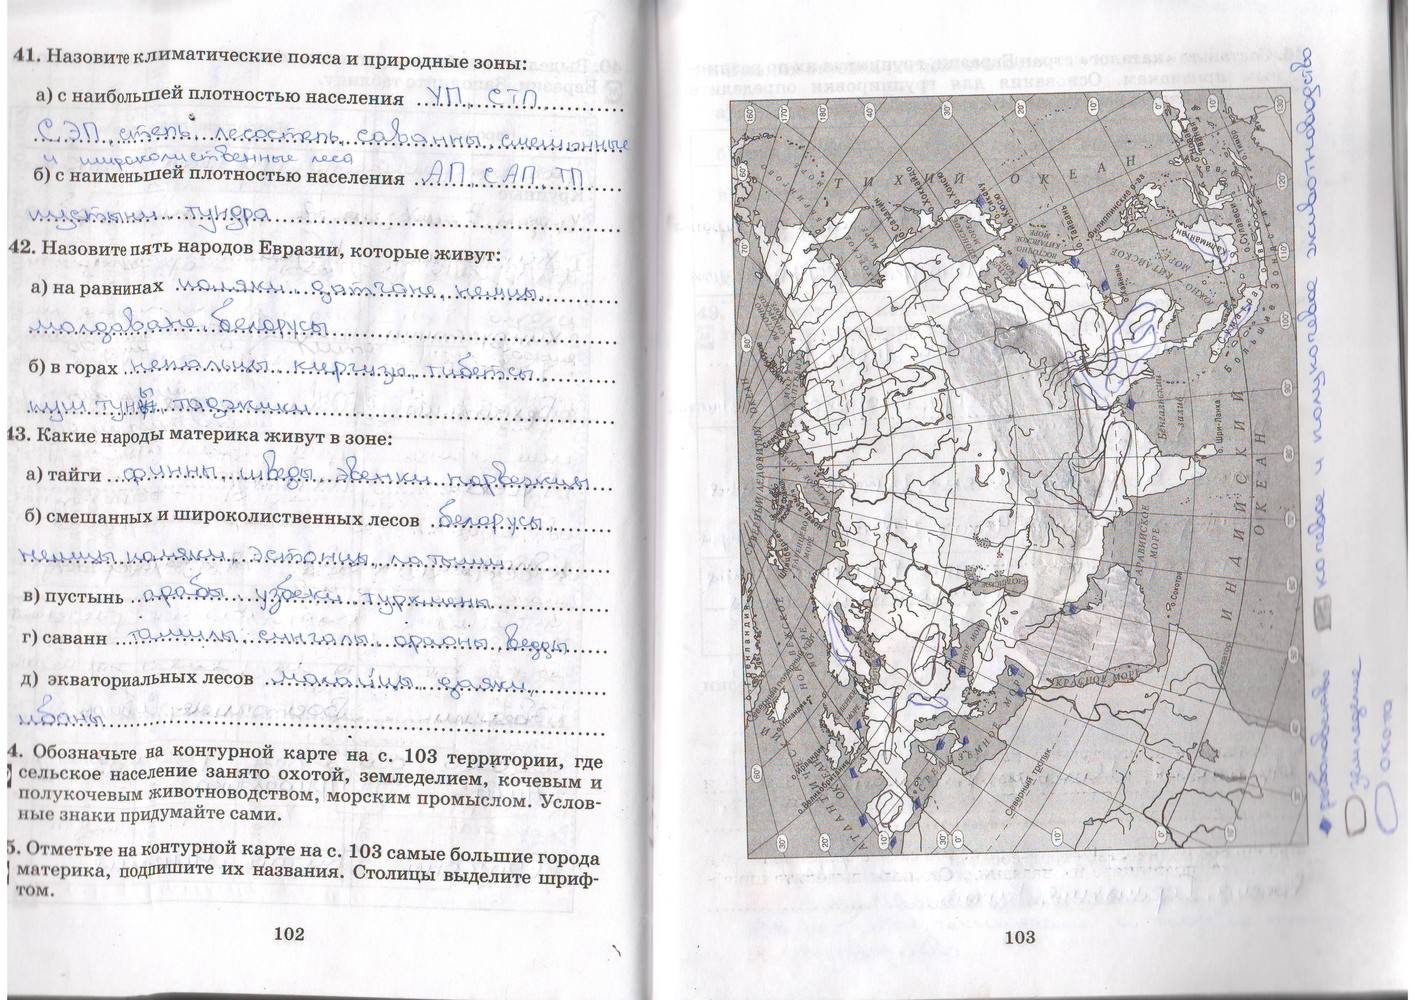 41. Назовите климатические пояса и природные зоны:
а) с наибольшей плотностью населения УП, СТП
СЭП, степь, лесостепь, саванны, смешанные
и широколиственные леса
б) с наименьшей плотностью населения АП, САП, ТП
пустыни, тундра
42. Назовите пять народов Евразии, которые живут:
а) на равнинах поляки, датчане, немцы,
молдаване, белорусы
б) в горах непальцы, киргизы, тибетсы,
пуштуны, таджики
43. Какие народы материка живут в зоне:
а) тайги финны, шведы, эвенки, норвежцы
б) смешанных и широколиственных лесов белорусы,
немцы, поляки, эстонцы, латыши
в) пустынь арабы, узбеки, туркмены
г) саванн тамилы, сингалы, ораоны, ведды
д) экваториальных лесов малайцы, даяки,
ибаны
4. Обозначьте на контурной карте на с. 103 территории, где
сельское население занято охотой, земледелием, кочевым и
полукочевым животноводством, морским промыслом. Услов-
ные знаки придумайте сами.
5. Отметьте на контурной карте на с. 103 самые большие города
материка, подпишите их названия. Столицы выделите шриф-
том.
102
ТИХИЙ ОКЕАН
о. Сахалин
о. Хоккайдо
о. Хонсю
о. Кюсю
о. Тайвань
Филиппинские о-ва
о. Калимантан
о. Сулавеси
о. Тимор
о. Новая Гвинея
ВОСТОЧНО-КИТАЙСКОЕ МОРЕ
ЮЖНО-КИТАЙСКОЕ МОРЕ
о. Хайнань
о. Суматра
Большие Зондские
Бенгальский залив
о. Шри-Ланка
ИНДИЙСКИЙ ОКЕАН
АРАВИЙСКОЕ МОРЕ
о. Сокотра
КРАСНОЕ МОРЕ
СРЕДИЗЕМНОЕ М.
ЧЕРНОЕ МОРЕ
Северный тропик
Экватор
о. Великобритания
о. Ирландия
СЕВЕРНЫЙ ЛЕДОВИТЫЙ ОКЕАН
рыболовство
кочевое и полукочевое животноводство
земледелие
охота
103